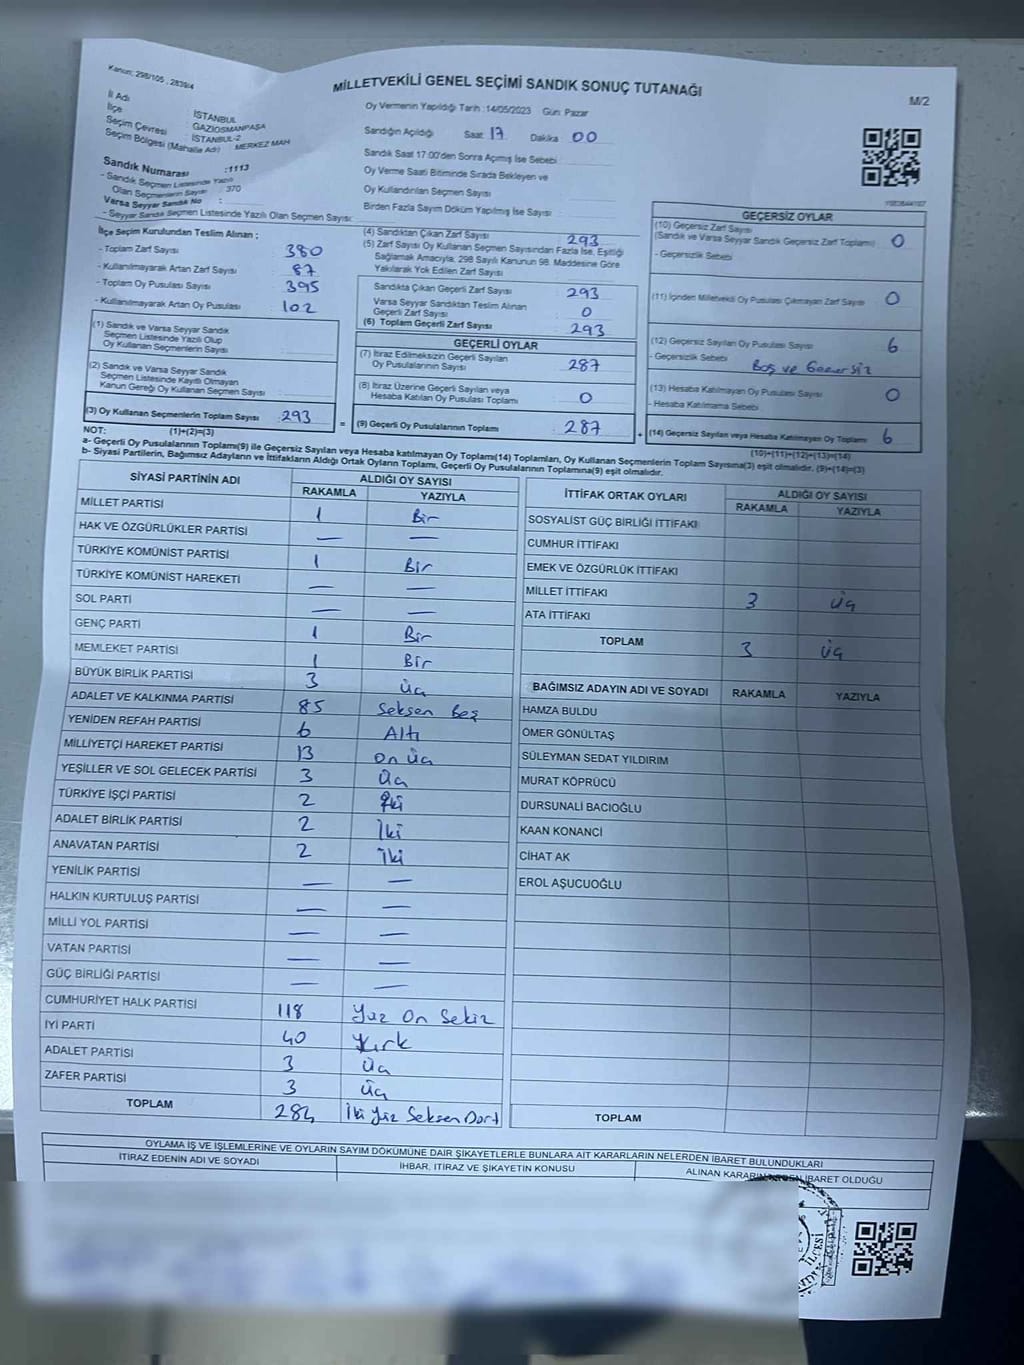 Kanun: 298/105 ; 2839/4
MİLLETVEKİLİ GENEL SEÇİMİ SANDIK SONUÇ TUTANAĞI
M/2
İl Adı : İSTANBUL
İlçe : GAZİOSMANPAŞA
Seçim Çevresi : İSTANBUL-2
Seçim Bölgesi (Mahalle Adı) : MERKEZ MAH
Sandık Numarası :1113
- Sandık Seçmen Listesinde Yazılı
Olan Seçmenlerin Sayısı : 370
Varsa Seyyar Sandık No :
- Seyyar Sandık Seçmen Listesinde Yazılı Olan Seçmen Sayısı:
Oy Vermenin Yapıldığı Tarih :14/05/2023 Gün: Pazar
Sandığın Açıldığı Saat: 17 Dakika 00
Sandık Saat 17:00'den Sonra Açımış İse Sebebi :
Oy Verme Saati Bitiminde Sırada Bekleyen ve
Oy Kullandırılan Seçmen Sayısı :
Birden Fazla Sayım Döküm Yapılmış İse Sayısı :
İlçe Seçim Kurulundan Teslim Alınan ;
- Toplam Zarf Sayısı : 380
- Kullanılmayarak Artan Zarf Sayısı : 87
- Toplam Oy Pusulası Sayısı : 395
- Kullanılmayarak Artan Oy Pusulası : 102
(1) Sandık ve Varsa Seyyar Sandık
Seçmen Listesinde Yazılı Olup
Oy Kullanan Seçmenlerin Sayısı :
(2) Sandık ve Varsa Seyyar Sandık
Seçmen Listesinde Kayıtlı Olmayan
Kanun Gereği Oy Kullanan Seçmen Sayısı :
(3) Oy Kullanan Seçmenlerin Toplam Sayısı : 293
(1)+(2)=(3)
(4) Sandıktan Çıkan Zarf Sayısı : 293
(5) Zarf Sayısı Oy Kullanan Seçmen Sayısından Fazla İse, Eşitliği
Sağlamak Amacıyla, 298 Sayılı Kanunun 98. Maddesine Göre
Yakılarak Yok Edilen Zarf Sayısı :
Sandıkta Çıkan Geçerli Zarf Sayısı : 293
Varsa Seyyar Sandıktan Teslim Alınan
Geçerli Zarf Sayısı : 0
(6) Toplam Geçerli Zarf Sayısı : 293
GEÇERLİ OYLAR
(7) İtiraz Edilmeksizin Geçerli Sayılan
Oy Pusulalarının Sayısı : 287
(8) İtiraz Üzerine Geçerli Sayılan veya
Hesaba Katılan Oy Pusulası Toplamı : 0
= (9) Geçerli Oy Pusulalarının Toplamı : 287
GEÇERSİZ OYLAR
(10) Geçersiz Zarf Sayısı
(Sandık ve Varsa Seyyar Sandık Geçersiz Zarf Toplamı) : 0
- Geçersizlik Sebebi :
(11) İçinden Milletvekili Oy Pusulası Çıkmayan Zarf Sayısı : 0
(12) Geçersiz Sayılan Oy Pusulası Sayısı : 6
- Geçersizlik Sebebi : Boş ve Geçersiz
(13) Hesaba Katılmayan Oy Pusulası Sayısı : 0
- Hesaba Katılmama Sebebi :
+ (14) Geçersiz Sayılan veya Hesaba Katılmayan Oy Toplamı : 6
(10)+(11)+(12)+(13)=(14)
NOT:
a- Geçerli Oy Pusulalarının Toplamı(9) ile Geçersiz Sayılan veya Hesaba katılmayan Oy Toplamı(14) Toplamları, Oy Kullanan Seçmenlerin Toplam Sayısına(3) eşit olmalıdır. (9)+(14)=(3)
b- Siyasi Partilerin, Bağımsız Adayların ve İttifakların Aldığı Ortak Oyların Toplamı, Geçerli Oy Pusulalarının Toplamına(9) eşit olmalıdır.
SİYASİ PARTİNİN ADI ALDIĞI OY SAYISI
RAKAMLA YAZIYLA
MİLLET PARTİSİ 1 Bir
HAK VE ÖZGÜRLÜKLER PARTİSİ — —
TÜRKİYE KOMÜNİST PARTİSİ 1 Bir
TÜRKİYE KOMÜNİST HAREKETİ — —
SOL PARTİ — —
GENÇ PARTİ 1 Bir
MEMLEKET PARTİSİ 1 Bir
BÜYÜK BİRLİK PARTİSİ 3 Üç
ADALET VE KALKINMA PARTİSİ 85 Seksen Beş
YENİDEN REFAH PARTİSİ 6 Altı
MİLLİYETÇİ HAREKET PARTİSİ 13 On üç
YEŞİLLER VE SOL GELECEK PARTİSİ 3 Üç
TÜRKİYE İŞÇİ PARTİSİ 2 İki
ADALET BİRLİK PARTİSİ 2 İki
ANAVATAN PARTİSİ 2 İki
YENİLİK PARTİSİ — —
HALKIN KURTULUŞ PARTİSİ — —
MİLLİ YOL PARTİSİ — —
VATAN PARTİSİ — —
GÜÇ BİRLİĞİ PARTİSİ — —
CUMHURİYET HALK PARTİSİ 118 Yüz On Sekiz
İYİ PARTİ 40 Kırk
ADALET PARTİSİ 3 Üç
ZAFER PARTİSİ 3 Üç
TOPLAM 284 İki Yüz Seksen Dört
İTTİFAK ORTAK OYLARI ALDIĞI OY SAYISI
RAKAMLA YAZIYLA
SOSYALİST GÜÇ BİRLİĞİ İTTİFAKI
CUMHUR İTTİFAKI
EMEK VE ÖZGÜRLÜK İTTİFAKI
MİLLET İTTİFAKI 3 üç
ATA İTTİFAKI
TOPLAM 3 üç
BAĞIMSIZ ADAYIN ADI VE SOYADI RAKAMLA YAZIYLA
HAMZA BULDU
ÖMER GÖNÜLTAŞ
SÜLEYMAN SEDAT YILDIRIM
MURAT KÖPRÜCÜ
DURSUNALİ BACIOĞLU
KAAN KONANCİ
CİHAT AK
EROL AŞUCUOĞLU
TOPLAM
OYLAMA İŞ VE İŞLEMLERİNE VE OYLARIN SAYIM DÖKÜMÜNE DAİR ŞİKAYETLERLE BUNLARA AİT KARARLARIN NELERDEN İBARET BULUNDUKLARI
İTİRAZ EDENİN ADI VE SOYADI İHBAR, İTİRAZ VE ŞİKAYETİN KONUSU ALINAN KARARIN NEDEN İBARET OLDUĞU
İLÇESİ